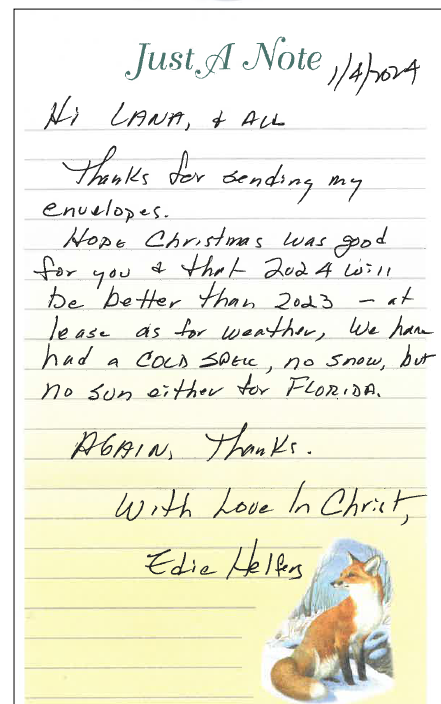 Just A Note
1/4/2024
Hi LANA, & ALL
Thanks for sending my
envelopes.
HOPE Christmas was good
for you & that 2024 will
be better than 2023 – at
lease as for weather, We have
had a COLD SPELL, no snow, but
no sun either for FLORIDA.
AGAIN, Thanks.
With Love In Christ,
Edie Helfers